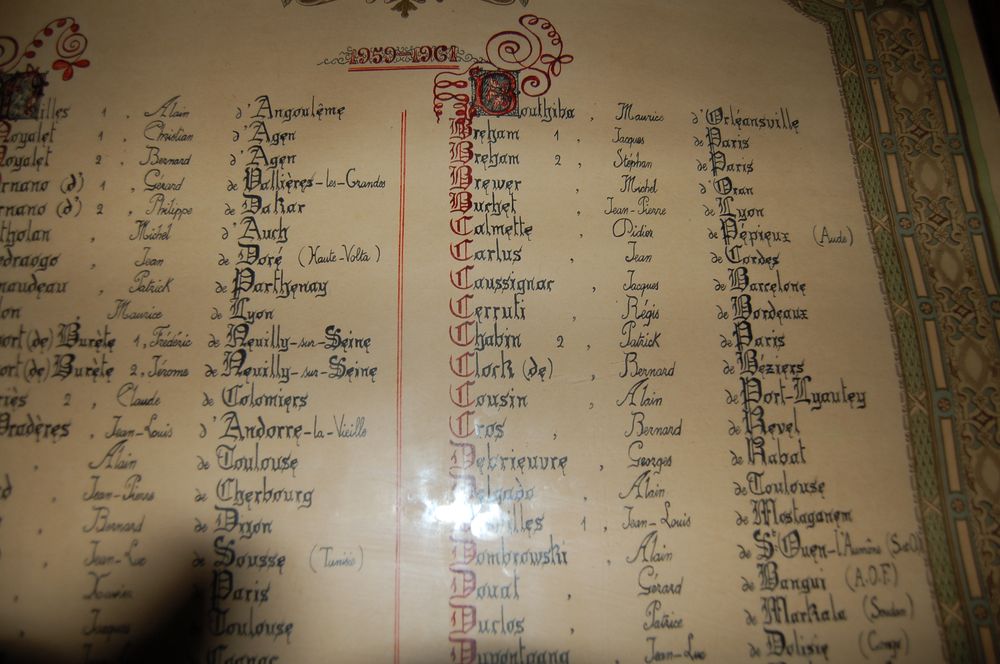 1959-1961
illes 1, Alain d'Angoulême
oyalet 1, Christian d'Agen
oyalet 2, Bernard d'Agen
rnano (d') 1, Gérard de Vallières-les-Grandes
rnano (d') 2, Philippe de Dakar
tholan, Michel d'Auch
edraogo, Jean de Doré (Haute-Volta)
naudeau, Patrick de Parthenay
lon Maurice de Lyon
port (de) Burète 1, Frédéric de Neuilly-sur-Seine
port (de) Burète 2, Jérome de Neuilly-sur-Seine
riès 2, Claude de Colomiers
Pradères, Jean-Louis d'Andorre-la-Vieille
, Alain de Toulouse
d, Jean-Pierre de Cherbourg
, Bernard de Dijon
, Jean-Luc de Sousse (Tunisie)
, Xavier de Paris
Jacques de Toulouse
Cognac
Bouthiba, Maurice d'Orléansville
Breham 1, Jacques de Paris
Breham 2, Stéphan de Paris
Brewer, Michel d'Oran
Buchet, Jean-Pierre de Lyon
Calmette, Didier de Pépieux (Aude)
Carlus, Jean de Cordes
Caussignac, Jacques de Barcelone
Cerruti, Régis de Bordeaux
Chabin 2, Patrick de Paris
Clock (de), Bernard de Béziers
Cousin, Alain de Port-Lyautey
Cros, Bernard de Revel
Debrieuvre, Georges de Rabat
Delgado, Alain de Toulouse
illes 1, Jean-Louis de Mostaganem
Dombrowski, Alain de St Ouen-l'Aumône (S.et.O.)
Douat, Gérard de Bangui (A.O.F.)
Duclos, Patrice de Markala (Soudan)
Dupontgang, Jean-Luc de Dolisie (Congo)